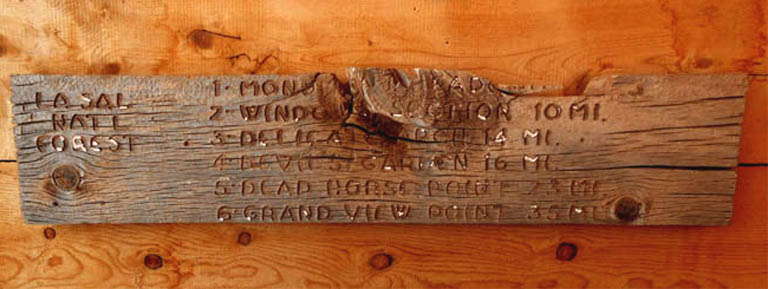 LA SAL
NAT'L
FOREST
1· MON
2· WINDOW SECTION 10 MI.
3· DELICATE ARCH 14 MI.
4· DEVIL'S GARDEN 16 MI.
5· DEAD HORSE POINT 23 MI.
6· GRAND VIEW POINT 35 MI